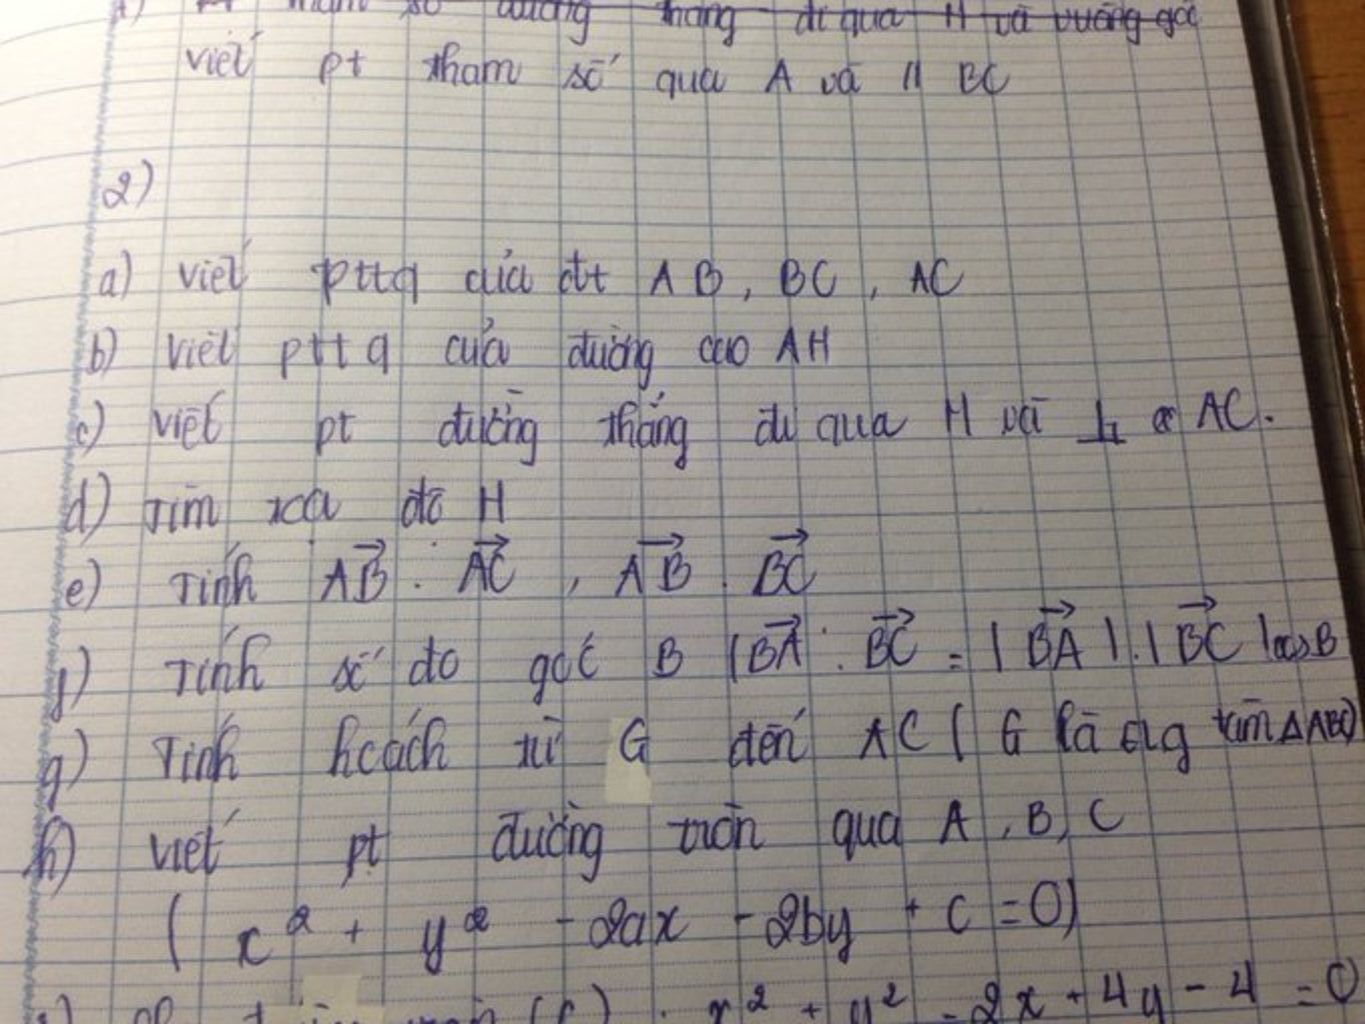 số đường thẳng đi qua H và vuông góc
viết pt tham số qua A và // BC
2)
a) viết pttq của đt AB, BC, AC
b) viết pttq của đường cao AH
c) viết pt đường thẳng đi qua H và ⊥ AC.
d) Tìm tọa độ H
e) Tính AB→ . AC→ , AB→ . BC→
f) Tính số đo góc B (BA→ . BC→ = |BA→| . |BC→| cosB
g) Tính kcách từ G đến AC ( G là trg tâm ΔABC)
h) viết pt đường tròn qua A, B, C
( x² + y² - 2ax - 2by + c = 0)
(C) : x² + y² - 2x + 4y - 4 = 0